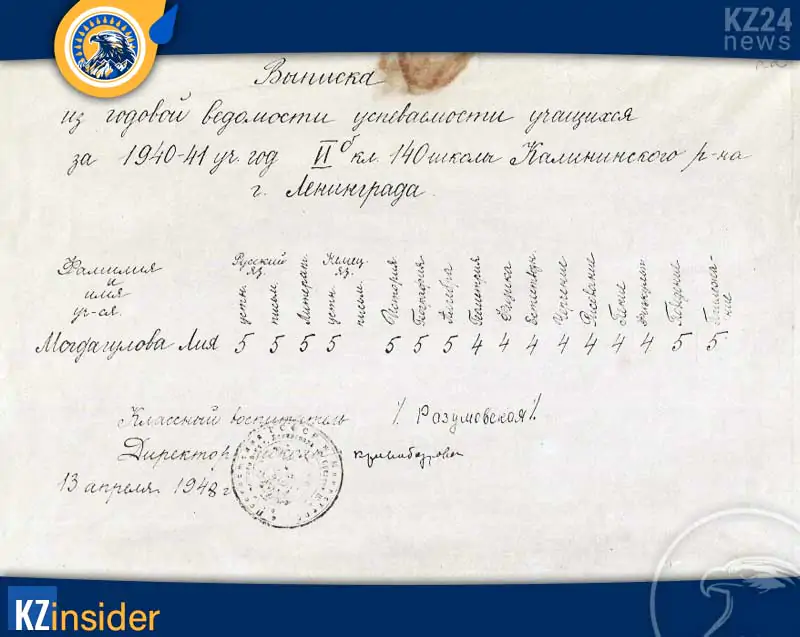 KZ24
news
Выписка
из годовой ведомости успеваемости учащихся
за 1940-41 уч. год VI б кл. 140 школы Калининского р-на
г. Ленинграда.
Фамилия и имя уч-ся.
Русский яз. устн. письм.
Литерат.
Немец. яз. устн. письм.
История
География
Алгебра
Геометрия
Физика
Естествозн.
Черчение
Рисование
Пение
Физкульт.
Поведение
Молдагулова Лия 5 5 5 5 5 5 5 4 4 4 4 4 4 4 5 5
Классный воспитатель /. Разумовская /.
Директор школы
13 апреля 1948 г
KZinsider